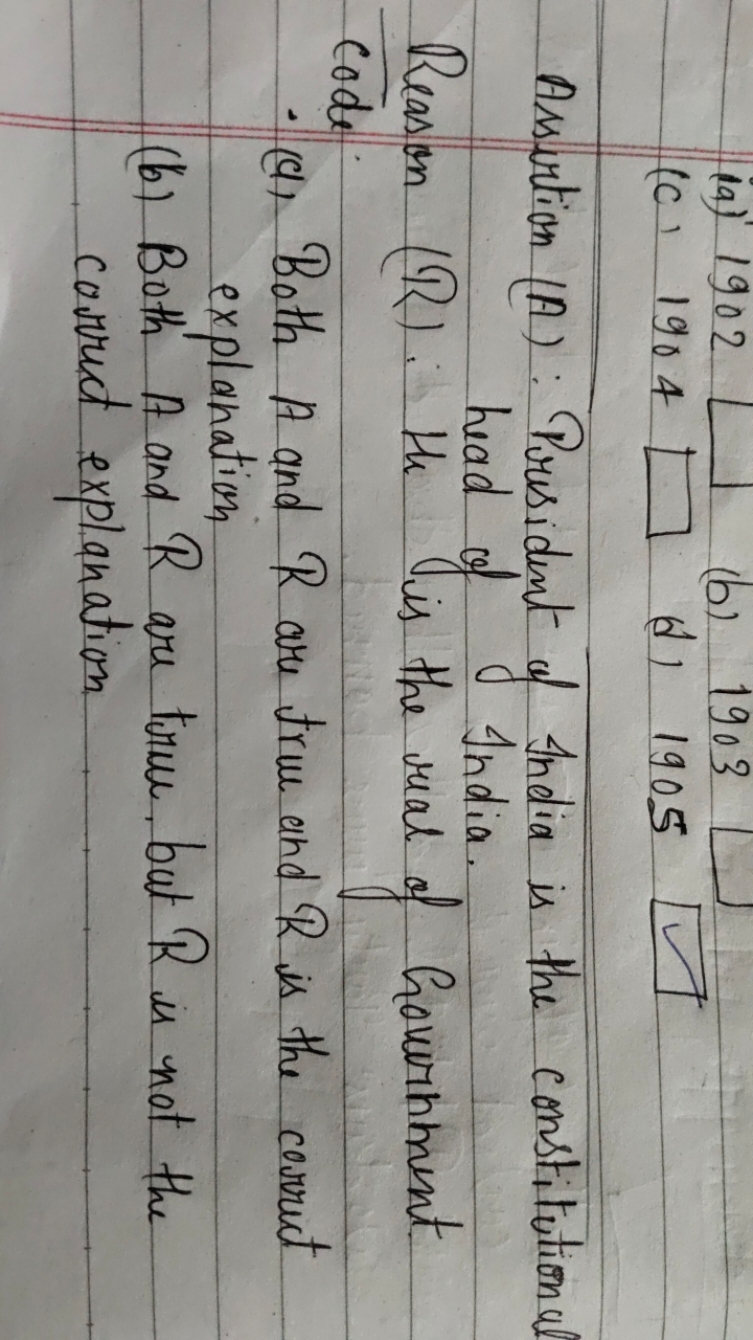 (a) 1902 (b) 1903
(c) 1904 d) 1905 ✓
Assertion (A): President of India is the constitutional
head of India.
Reason (R): He is the real of Government
Code:
(a) Both A and R are true and R is the correct
explanation
(b) Both A and R are true, but R is not the
correct explanation